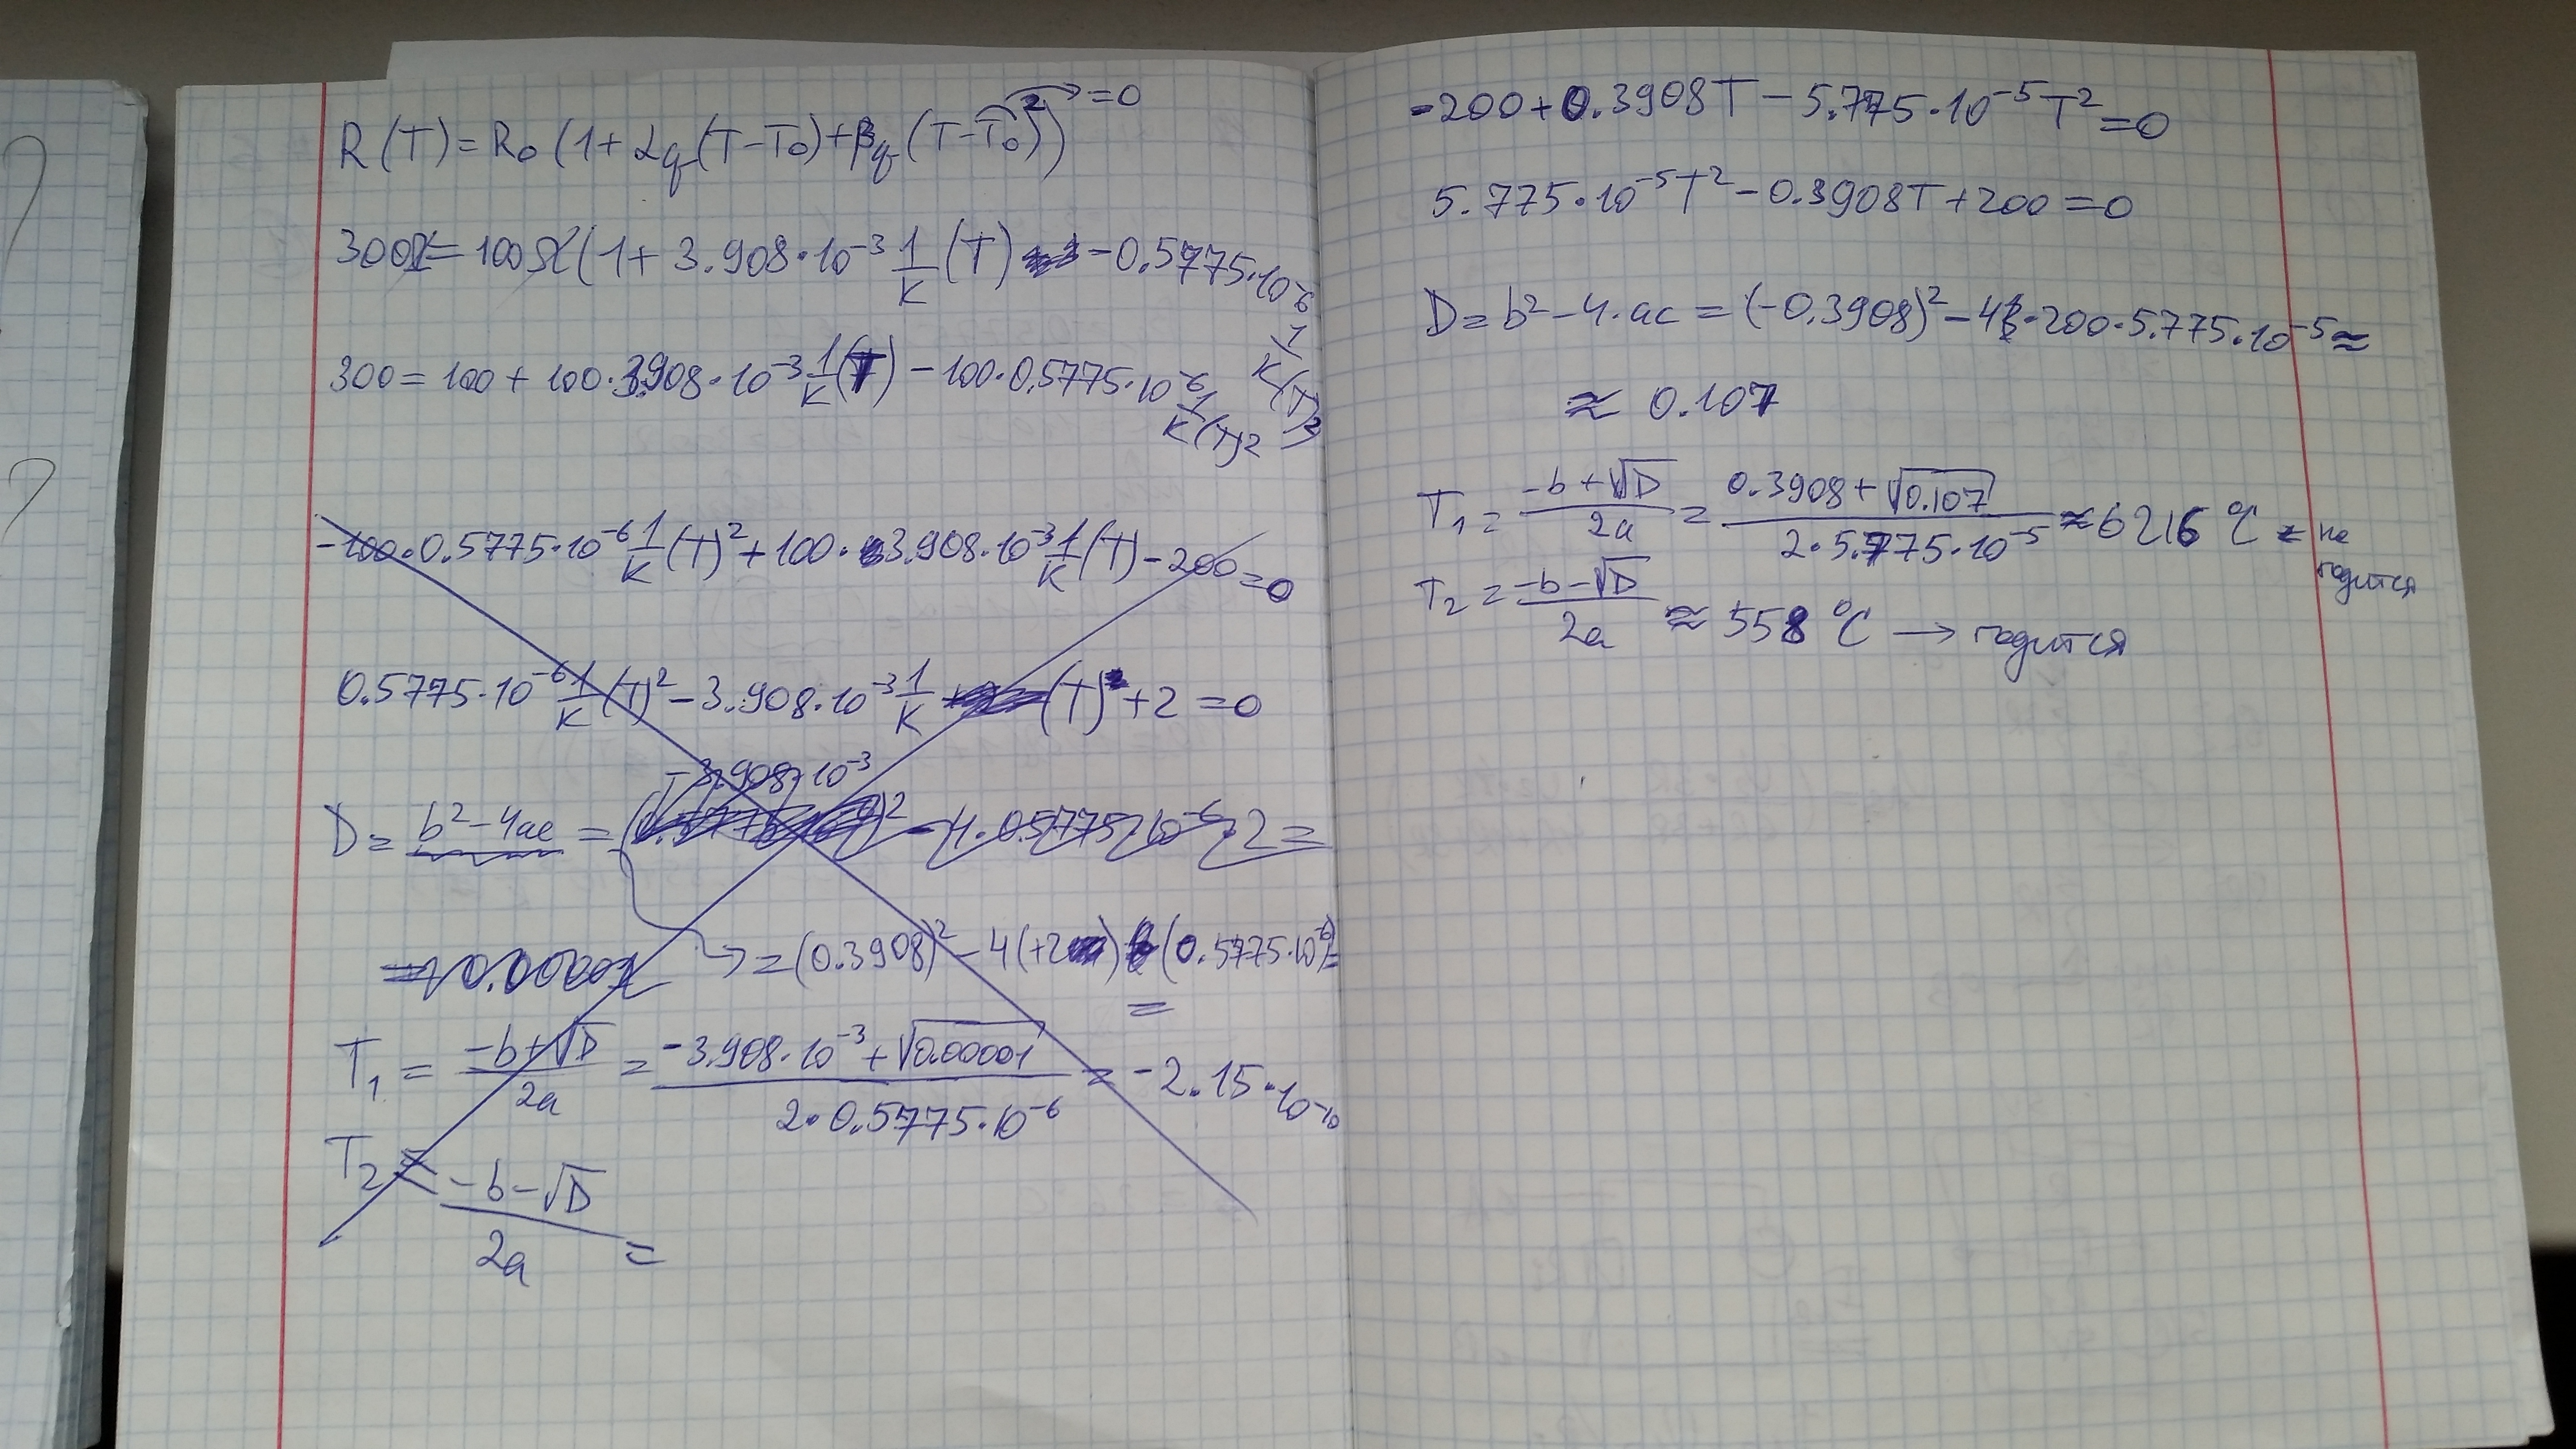 R(T) = R₀(1 + α_q(T-T₀) + β_q(T-T₀)²) → =0
300Ω = 100Ω(1 + 3.908·10⁻³ 1/K (T) - 0.5775·10⁻⁶ 1/K (T)²)
300 = 100 + 100·3.908·10⁻³ 1/K (T) - 100·0.5775·10⁻⁶ 1/K (T)²
-100·0.5775·10⁻⁶ 1/K (T)² + 100·3.908·10⁻³ 1/K (T) - 200 = 0
0.5775·10⁻⁶ 1/K (T)² - 3.908·10⁻³ 1/K (T) + 2 = 0
3.908·10⁻³
D = b² - 4ac = ( )² - 4·0.5775·10⁻⁶·2 =
= 0.00001 → = (0.3908)² - 4(+2) (0.5775·10⁻⁶) =
=
T₁ = (-b+√D)/2a = (-3.908·10⁻³ + √0.00001)/(2·0.5775·10⁻⁶) = -2.15·10⁻¹⁰
T₂ = (-b-√D)/2a =
-200 + 0.3908T - 5.775·10⁻⁵T² = 0
5.775·10⁻⁵T² - 0.3908T + 200 = 0
D = b² - 4·ac = (-0.3908)² - 4·200·5.775·10⁻⁵ ≈
≈ 0.107
T₁ = (-b+√D)/2a = (0.3908+√0.107)/(2·5.775·10⁻⁵) ≈ 6216 °C = не годится
T₂ = (-b-√D)/2a ≈ 558 °C → годится